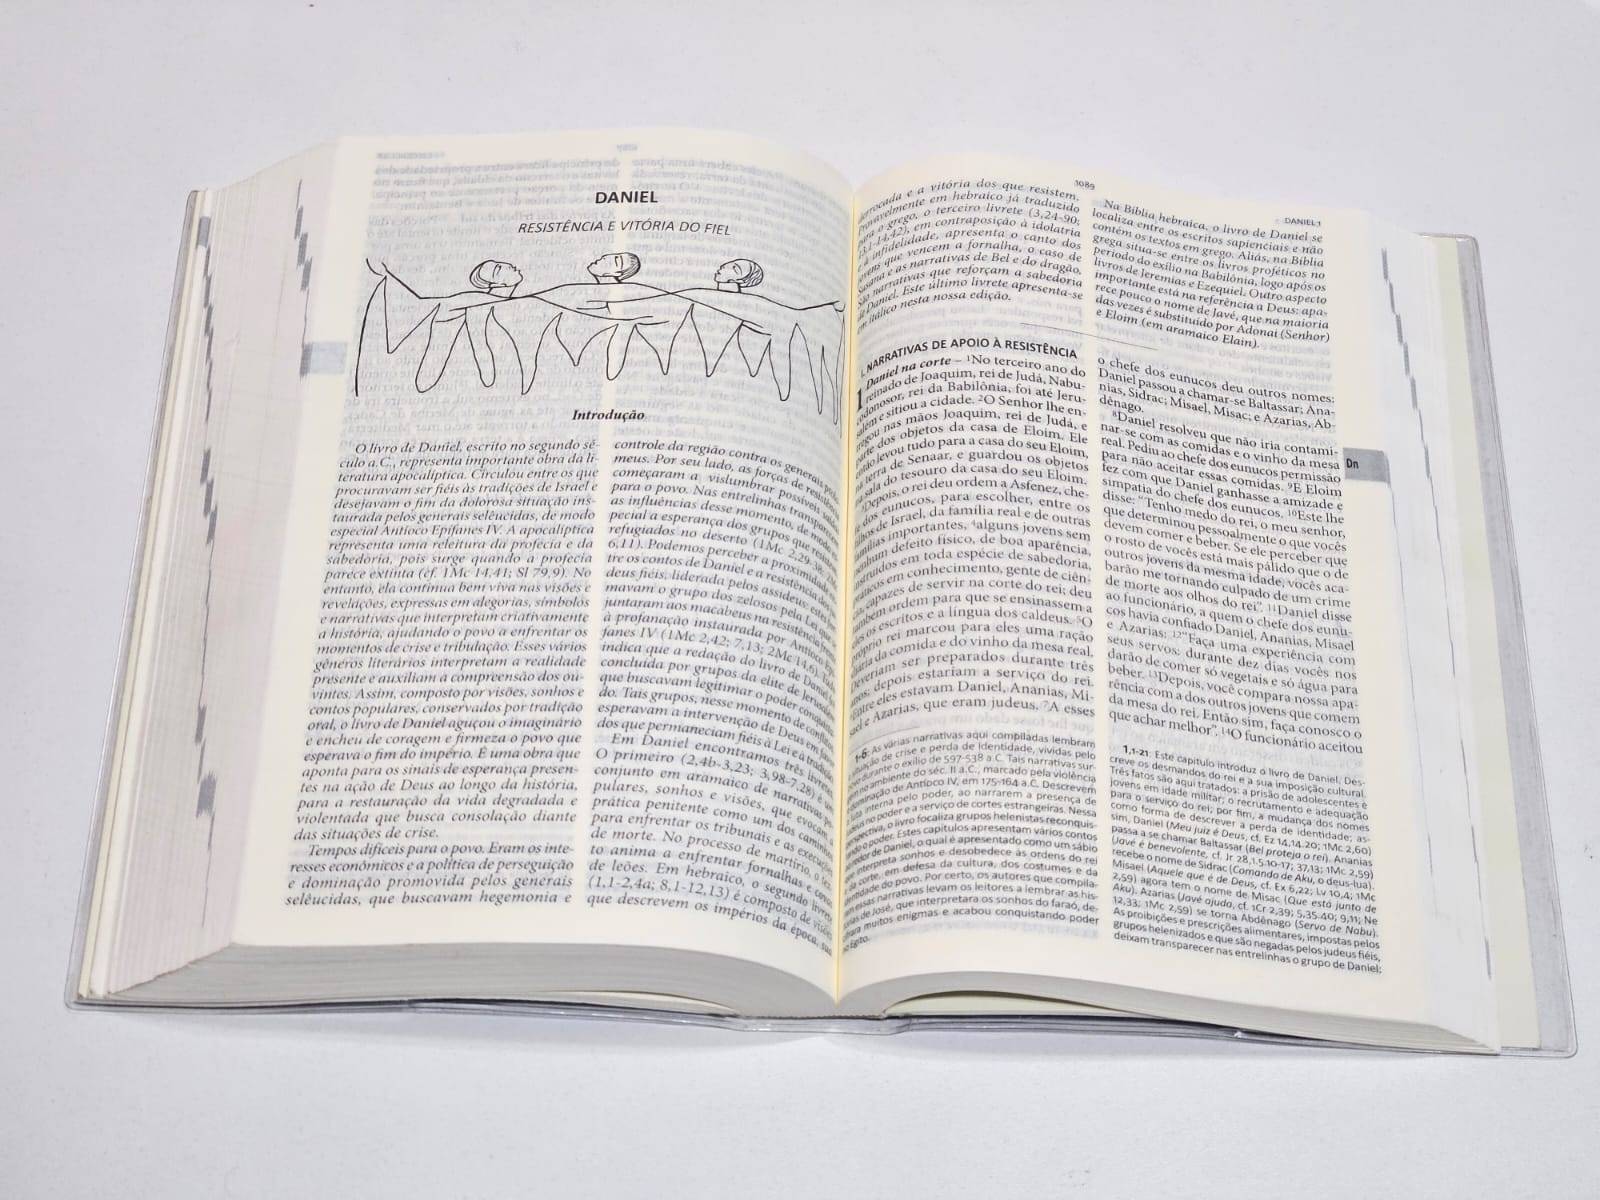 DANIEL
RESISTÊNCIA E VITÓRIA DO FIEL
Introdução
O livro de Daniel, escrito no segundo sé-
culo a.C., representa importante obra da li-
teratura apocalíptica. Circulou entre os que
procuravam ser fiéis às tradições de Israel e
desejavam o fim da dolorosa situação ins-
taurada pelos generais selêucidas, de modo
especial Antíoco Epífanes IV. A apocalíptica
representa uma releitura da profecia e da
sabedoria, pois surge quando a profecia
parece extinta (cf. 1Mc 14,41; Sl 79,9). No
entanto, ela continua bem viva nas visões e
revelações, expressas em alegorias, símbolos
e narrativas que interpretam criativamente
a história, ajudando o povo a enfrentar os
momentos de crise e tribulação. Esses vários
gêneros literários interpretam a realidade
presente e auxiliam a compreensão dos ou-
vintes. Assim, composto por visões, sonhos e
contos populares, conservados por tradição
oral, o livro de Daniel aguçou o imaginário
e encheu de coragem e firmeza o povo que
esperava o fim do império. É uma obra que
aponta para os sinais de esperança presen-
tes na ação de Deus ao longo da história,
para a restauração da vida degradada e
violentada que busca consolação diante
das situações de crise.
Tempos difíceis para o povo. Eram os inte-
resses econômicos e a política de perseguição
e dominação promovida pelos generais
selêucidas, que buscavam hegemonia e
controle da região contra os generais
meus. Por seu lado, as forças de resistência
começaram a vislumbrar possíveis saídas
para o povo. Nas entrelinhas transparecem
as influências desse momento, de modo es-
pecial a esperança dos grupos que
refugiados no deserto (1Mc 2,29.38; 2Mc
6,11). Podemos perceber a proximidade en-
tre os contos de Daniel e a resistência dos
deus fiéis, liderada pelos assideus:
mavam o grupo dos zelosos pela Lei que
juntaram aos macabeus na resistência
à profanação instaurada por Antíoco Epí-
fanes IV (1Mc 2,42; 7,13; 2Mc 14,6).
indica que a redação do livro de Daniel foi
concluída por grupos da elite de Jerusalém
que buscavam legitimar o poder
do. Tais grupos, nesse momento de conflitos
esperavam a intervenção de Deus em favor
dos que permaneciam fiéis à Lei e à tradição.
Em Daniel encontramos três livretes.
O primeiro (2,4b-3,23; 3,98-7,28) é um
conjunto em aramaico de narrativas po-
pulares, sonhos e visões, que evocam a
prática penitente como um dos caminhos
para enfrentar os tribunais e as execuções
de morte. No processo de martírio, o
to anima a enfrentar fornalhas e covas
de leões. Em hebraico, o segundo livrete
(1,1-2,4a; 8,1-12,13) é composto de visões
que descrevem os impérios da época, sua
1089
DANIEL 1
derrocada e a vitória dos que resistem.
Provavelmente em hebraico já traduzido
para o grego, o terceiro livrete (3,24-90;
13,1-14,42), em contraposição à idolatria
e à infidelidade, apresenta o canto dos
jovens que vencem a fornalha, o caso de
Susana e as narrativas de Bel e do dragão.
São narrativas que reforçam a sabedoria
de Daniel. Este último livrete apresenta-se
em itálico nesta nossa edição.
Na Bíblia hebraica, o livro de Daniel se
localiza entre os escritos sapienciais e não
contém os textos em grego. Aliás, na Bíblia
grega situa-se entre os livros proféticos no
período do exílio na Babilônia, logo após os
livros de Jeremias e Ezequiel. Outro aspecto
importante está na referência a Deus: apa-
rece pouco o nome de Javé, que na maioria
das vezes é substituído por Adonai (Senhor)
e Eloim (em aramaico Elain).
I. NARRATIVAS DE APOIO À RESISTÊNCIA
1 Daniel na corte – ¹No terceiro ano do
reinado de Joaquim, rei de Judá, Nabu-
codonosor, rei da Babilônia, foi até Jeru-
salém e sitiou a cidade. ²O Senhor lhe en-
tregou nas mãos Joaquim, rei de Judá, e
parte dos objetos da casa de Eloim. Ele
então levou tudo para a casa do seu Eloim,
na terra de Senaar, e guardou os objetos
na sala do tesouro da casa do seu Eloim.
³Depois, o rei deu ordem a Asfenez, che-
fe dos eunucos, para escolher, entre os
filhos de Israel, da família real e de outras
famílias importantes, ⁴alguns jovens sem
nenhum defeito físico, de boa aparência,
instruídos em toda espécie de sabedoria,
práticos em conhecimento, gente de ciên-
cia, capazes de servir na corte do rei; deu
também ordem para que se ensinassem a
eles os escritos e a língua dos caldeus. ⁵O
próprio rei marcou para eles uma ração
diária da comida e do vinho da mesa real.
Deveriam ser preparados durante três
anos; depois estariam a serviço do rei.
⁶Entre eles estavam Daniel, Ananias, Mi-
sael e Azarias, que eram judeus. ⁷A esses
o chefe dos eunucos deu outros nomes:
Daniel passou a chamar-se Baltassar; Ana-
nias, Sidrac; Misael, Misac; e Azarias, Ab-
dênago.
⁸Daniel resolveu que não iria contami-
nar-se com as comidas e o vinho da mesa
real. Pediu ao chefe dos eunucos permissão
para não aceitar essas comidas. ⁹E Eloim
fez com que Daniel ganhasse a amizade e
simpatia do chefe dos eunucos. ¹⁰Este lhe
disse: “Tenho medo do rei, o meu senhor,
que determinou pessoalmente o que vocês
devem comer e beber. Se ele perceber que
o rosto de vocês está mais pálido que o de
outros jovens da mesma idade, vocês aca-
barão me tornando culpado de um crime
de morte aos olhos do rei”. ¹¹Daniel disse
ao funcionário, a quem o chefe dos eunu-
cos havia confiado Daniel, Ananias, Misael
e Azarias: ¹²“Faça uma experiência com
seus servos: durante dez dias vocês nos
darão de comer só vegetais e só água para
beber. ¹³Depois, você compara a nossa apa-
rência com a dos outros jovens que comem
da mesa do rei. Então sim, faça conosco o
que achar melhor”. ¹⁴O funcionário aceitou
Dn
1-6: As várias narrativas aqui compiladas lembram
situação de crise e perda de identidade, vividas pelo
povo durante o exílio de 597-538 a.C. Tais narrativas sur-
gem no ambiente do séc. II a.C., marcado pela violência
e dominação de Antíoco IV, em 175-164 a.C. Descrevem
a luta interna pelo poder, ao narrarem a presença de
judeus no poder e a serviço de cortes estrangeiras. Nessa
perspectiva, o livro focaliza grupos helenistas reconquis-
tando o poder. Estes capítulos apresentam vários contos
ao redor de Daniel, o qual é apresentado como um sábio
que interpreta sonhos e desobedece às ordens do rei
e da corte, em defesa da cultura, dos costumes e da
identidade do povo. Por certo, os autores que compila-
ram essas narrativas levam os leitores a lembrar as his-
tórias de José, que interpretara os sonhos do faraó, de-
cifrara muitos enigmas e acabou conquistando poder
no Egito.
1,1-21: Este capítulo introduz o livro de Daniel. Des-
creve os desmandos do rei e a sua imposição cultural.
Três fatos são aqui tratados: a prisão de adolescentes e
jovens em idade militar; o recrutamento e adequação
para o serviço do rei; por fim, a mudança dos nomes
como forma de descrever a perda de identidade; as-
sim, Daniel (Meu juiz é Deus, cf. Ez 14,14.20; 1Mc 2,60)
passa a se chamar Baltassar (Bel proteja o rei). Ananias
(Javé é benevolente, cf. Jr 28,1.5.10-17; 37,13; 1Mc 2,59)
recebe o nome de Sidrac (Comando de Aku, o deus-lua).
Misael (Aquele que é de Deus, cf. Ex 6,22; Lv 10,4; 1Mc
2,59) agora tem o nome de Misac (Que está junto de
Aku). Azarias (Javé ajuda, cf. 1Cr 2,39; 5,35-40; 9,11; Ne
12,33; 1Mc 2,59) se torna Abdênago (Servo de Nabu).
As proibições e prescrições alimentares, impostas pelos
grupos helenizados e que são negadas pelos judeus fiéis,
deixam transparecer nas entrelinhas o grupo de Daniel: